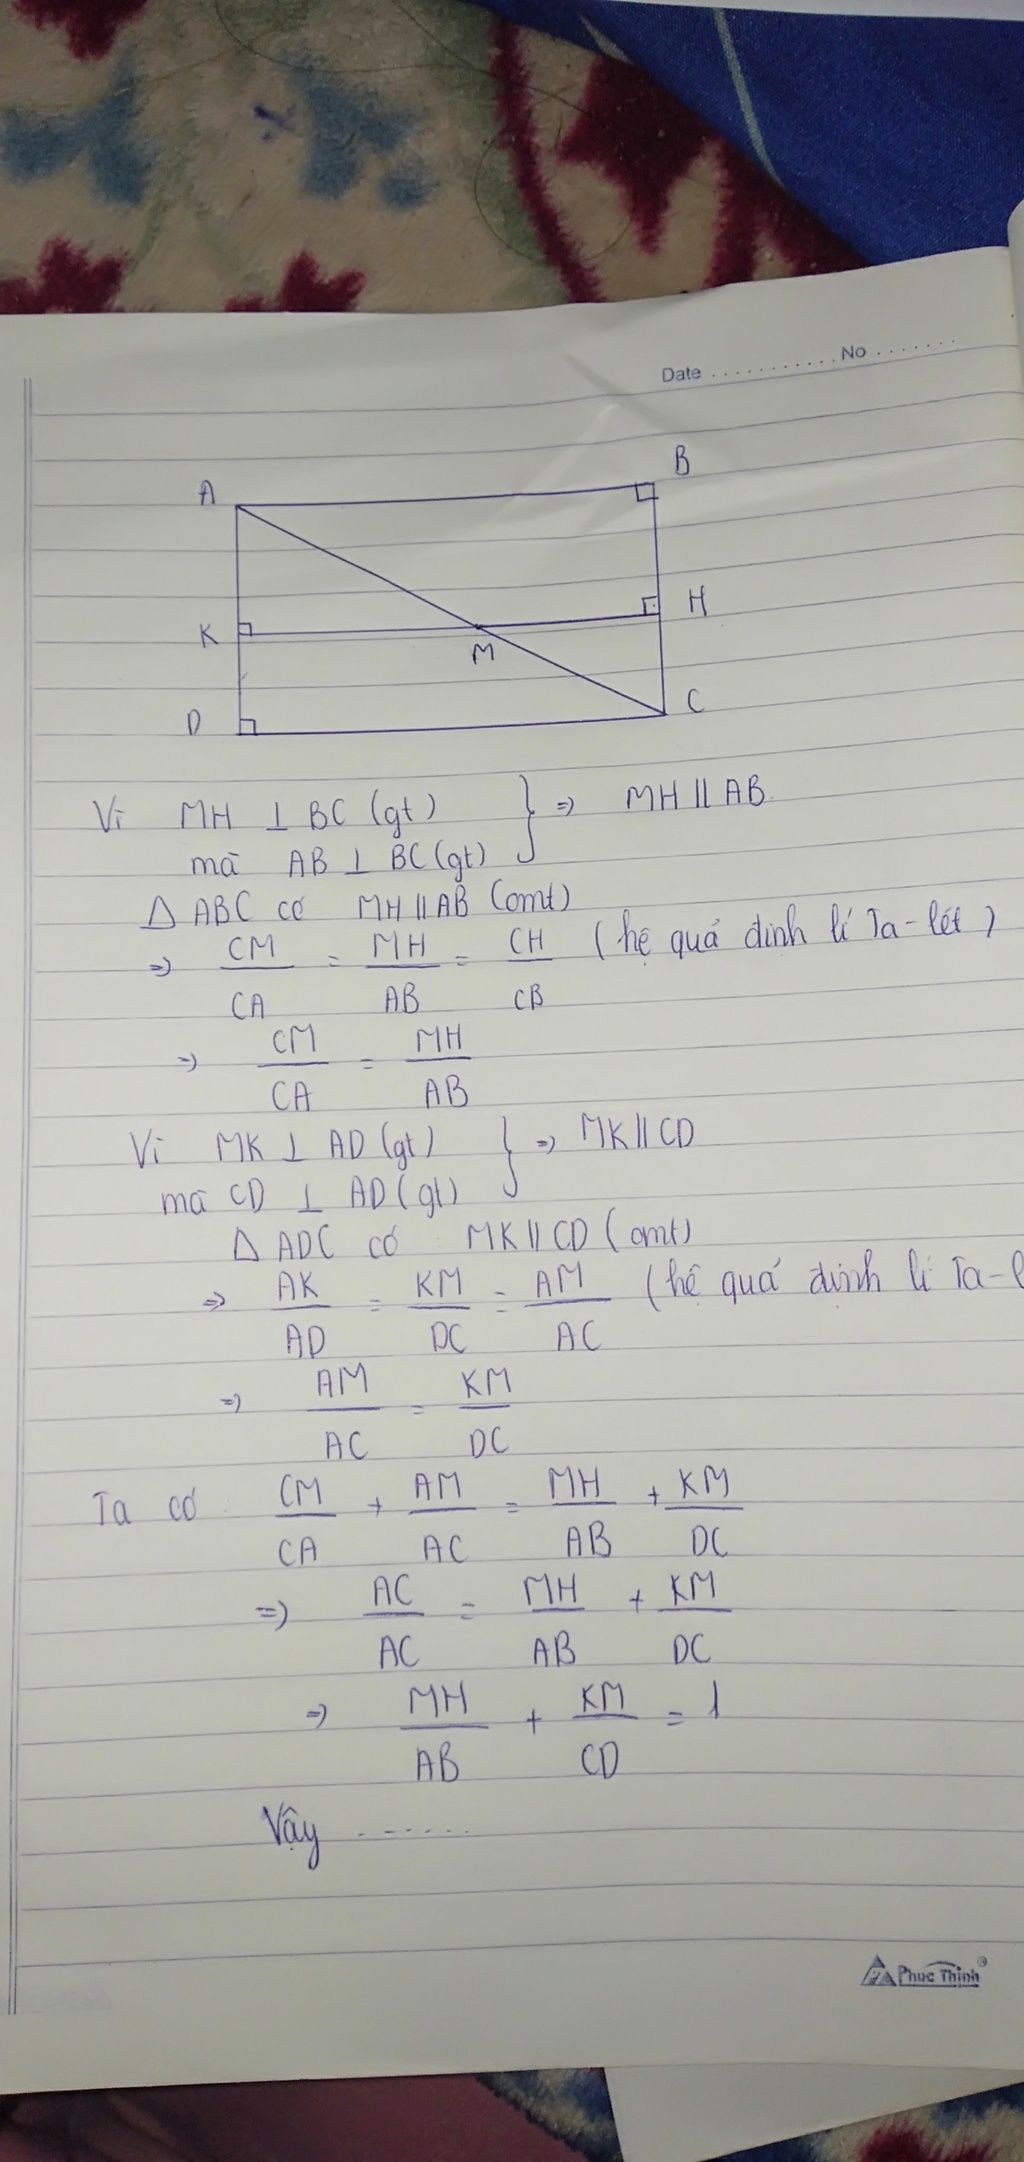 Date ............ No ........
A
B
K
H
M
D
C
Vì MH ⊥ BC (gt) } => MH // AB.
mà AB ⊥ BC (gt)
Δ ABC có MH // AB (cmt)
=> CM/CA = MH/AB = CH/CB (hệ quả định lí Ta-lét)
=> CM/CA = MH/AB
Vì MK ⊥ AD (gt) } => MK // CD
mà CD ⊥ AD (gt)
Δ ADC có MK // CD (cmt)
=> AK/AD = KM/DC = AM/AC (hệ quả định lí Ta-l
=> AM/AC = KM/DC
Ta có CM/CA + AM/AC = MH/AB + KM/DC
=> AC/AC = MH/AB + KM/DC
=> MH/AB + KM/CD = 1
Vậy .......
Phuc Thinh